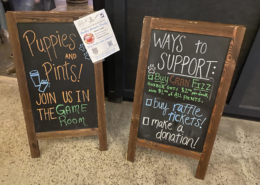 Puppies
AND
Pints!
JOIN US IN
THE GAME
ROOM
WAYS to
SUPPORT:
BUY CRAN FIZZ
buy raffle
tickets!
make a
donation!